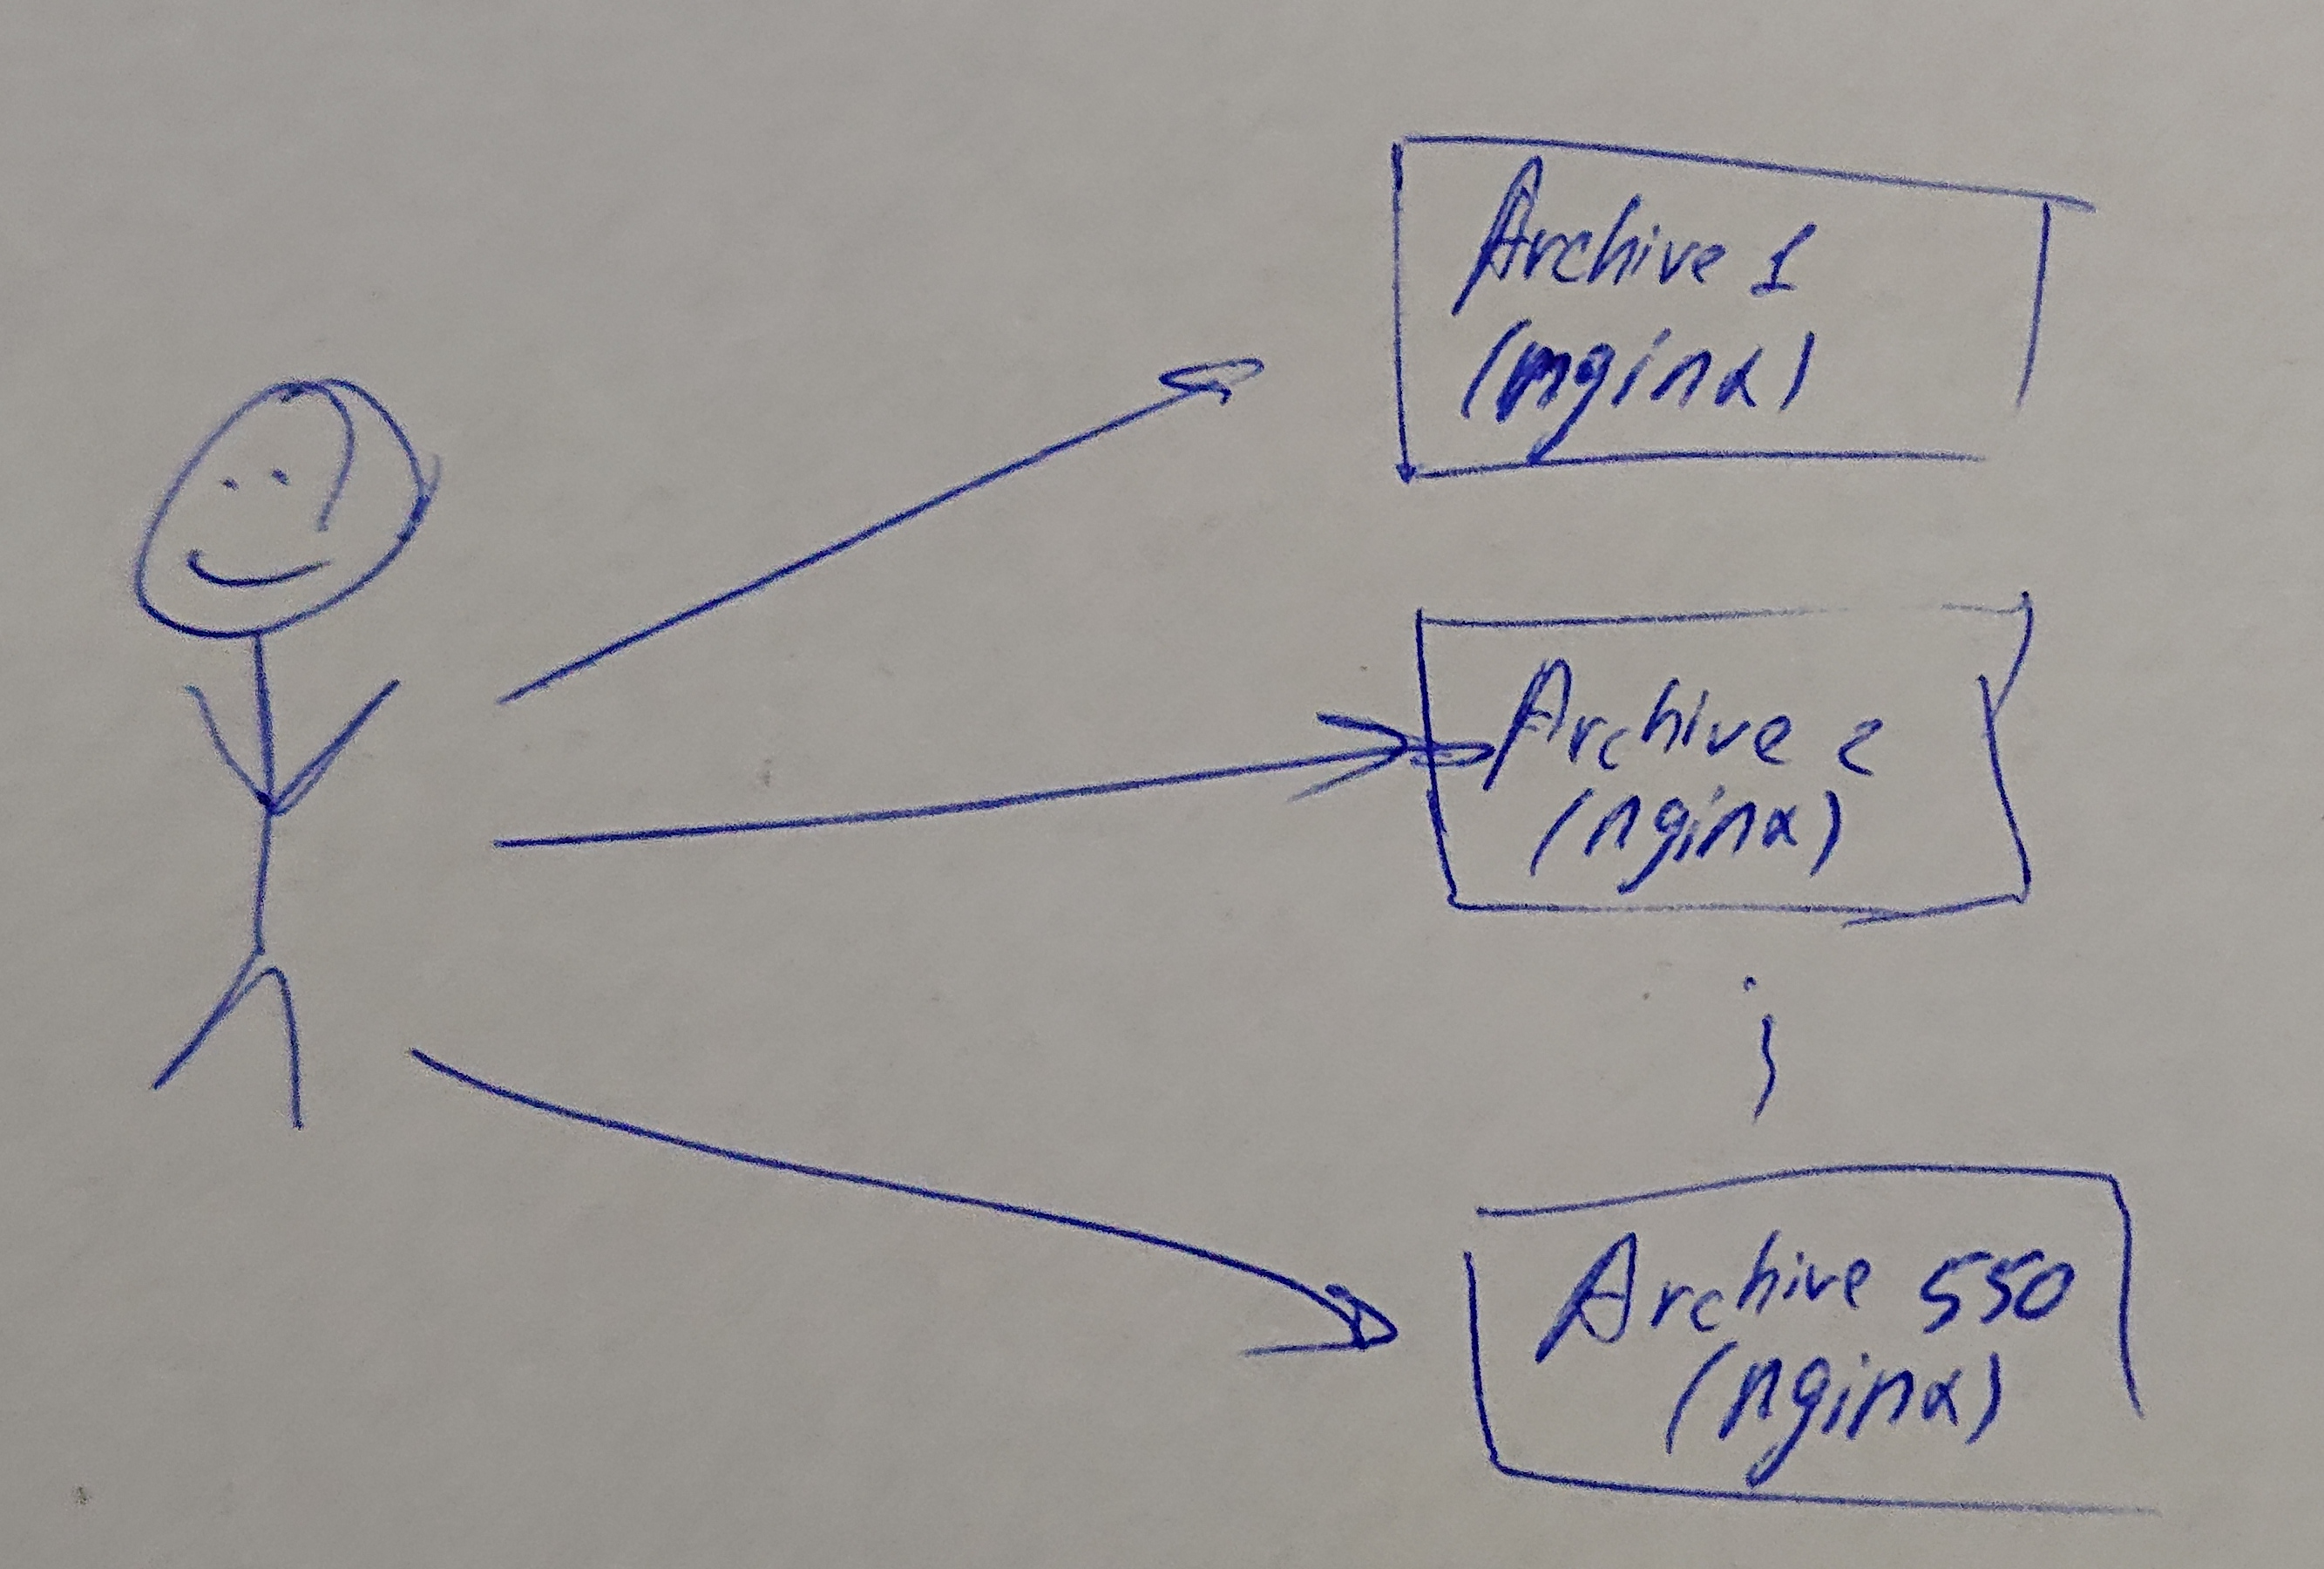 Archive 1
(nginx)
Archive 2
(nginx)
Archive 550
(nginx)